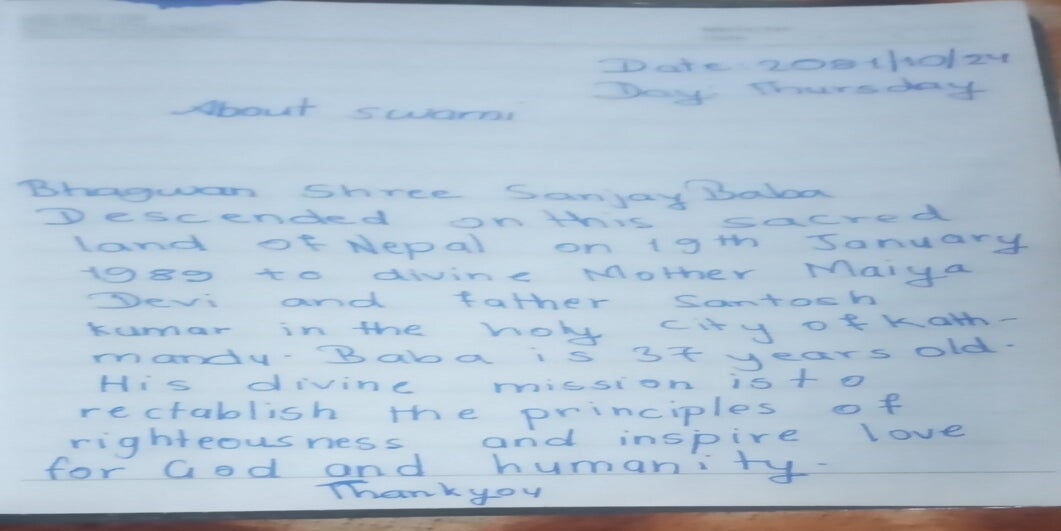 Date 2081/10/24
Day: Thursday
About swami
Bhagwan Shree Sanjay Baba
Descended on this sacred
land of Nepal on 19th January
1989 to divine Mother Maiya
Devi and father Santosh
kumar in the holy city of Kath-
mandu. Baba is 37 years old.
His divine mission is to
rectablish the principles of
righteousness and inspire love
for God and humanity.
Thankyou